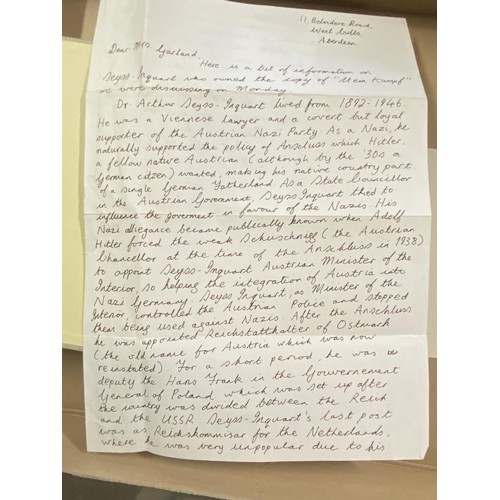 17, Belvidere Road,
West Cults,
Aberdeen
Dear Mrs Garland,
Here is a bit of information on
Seyss-Inquart who owned the copy of "Mein Kampf"
we were discussing on Monday
Dr Arthur Seyss-Inquart lived from 1892-1946
He was a Viennese lawyer and a covert but loyal
supporter of the Austrian Nazi Party As a Nazi, he
naturally supported the policy of Anschluss which Hitler,
a fellow native Austrian (although by the '30s a
German citizen) wanted, making his native country part
of a single German Fatherland. As a State Councillor
in the Austrian Government, Seyss Inquart tried to
influence the goverment in favour of the Nazis. His
Nazi allegiance became publically known when Adolf
Hitler forced the weak Schuschnigg (the Austrian
Chancellor at the time of the Anschluss in 1938)
to appoint Seyss-Inquart Austrian Minister of the
Interior, so helping the integration of Austria into
Nazi Germany. Seyss Inquart, as Minister of the
Interior, controlled the Austrian Police and stopped
them being used against Nazis After the Anschluss
he was appointed Reichstatthalter of Ostmark
(the old name for Austria which was now
reinstated) For a short period, he was
deputy the Hans Frank in the Gouvernement
General of Poland which was set up after
the country was divided between the Reich
and the USSR. Seyss-Inquart's last post
was as Reichskommisar for the Netherlands,
where he was very unpopular due to his